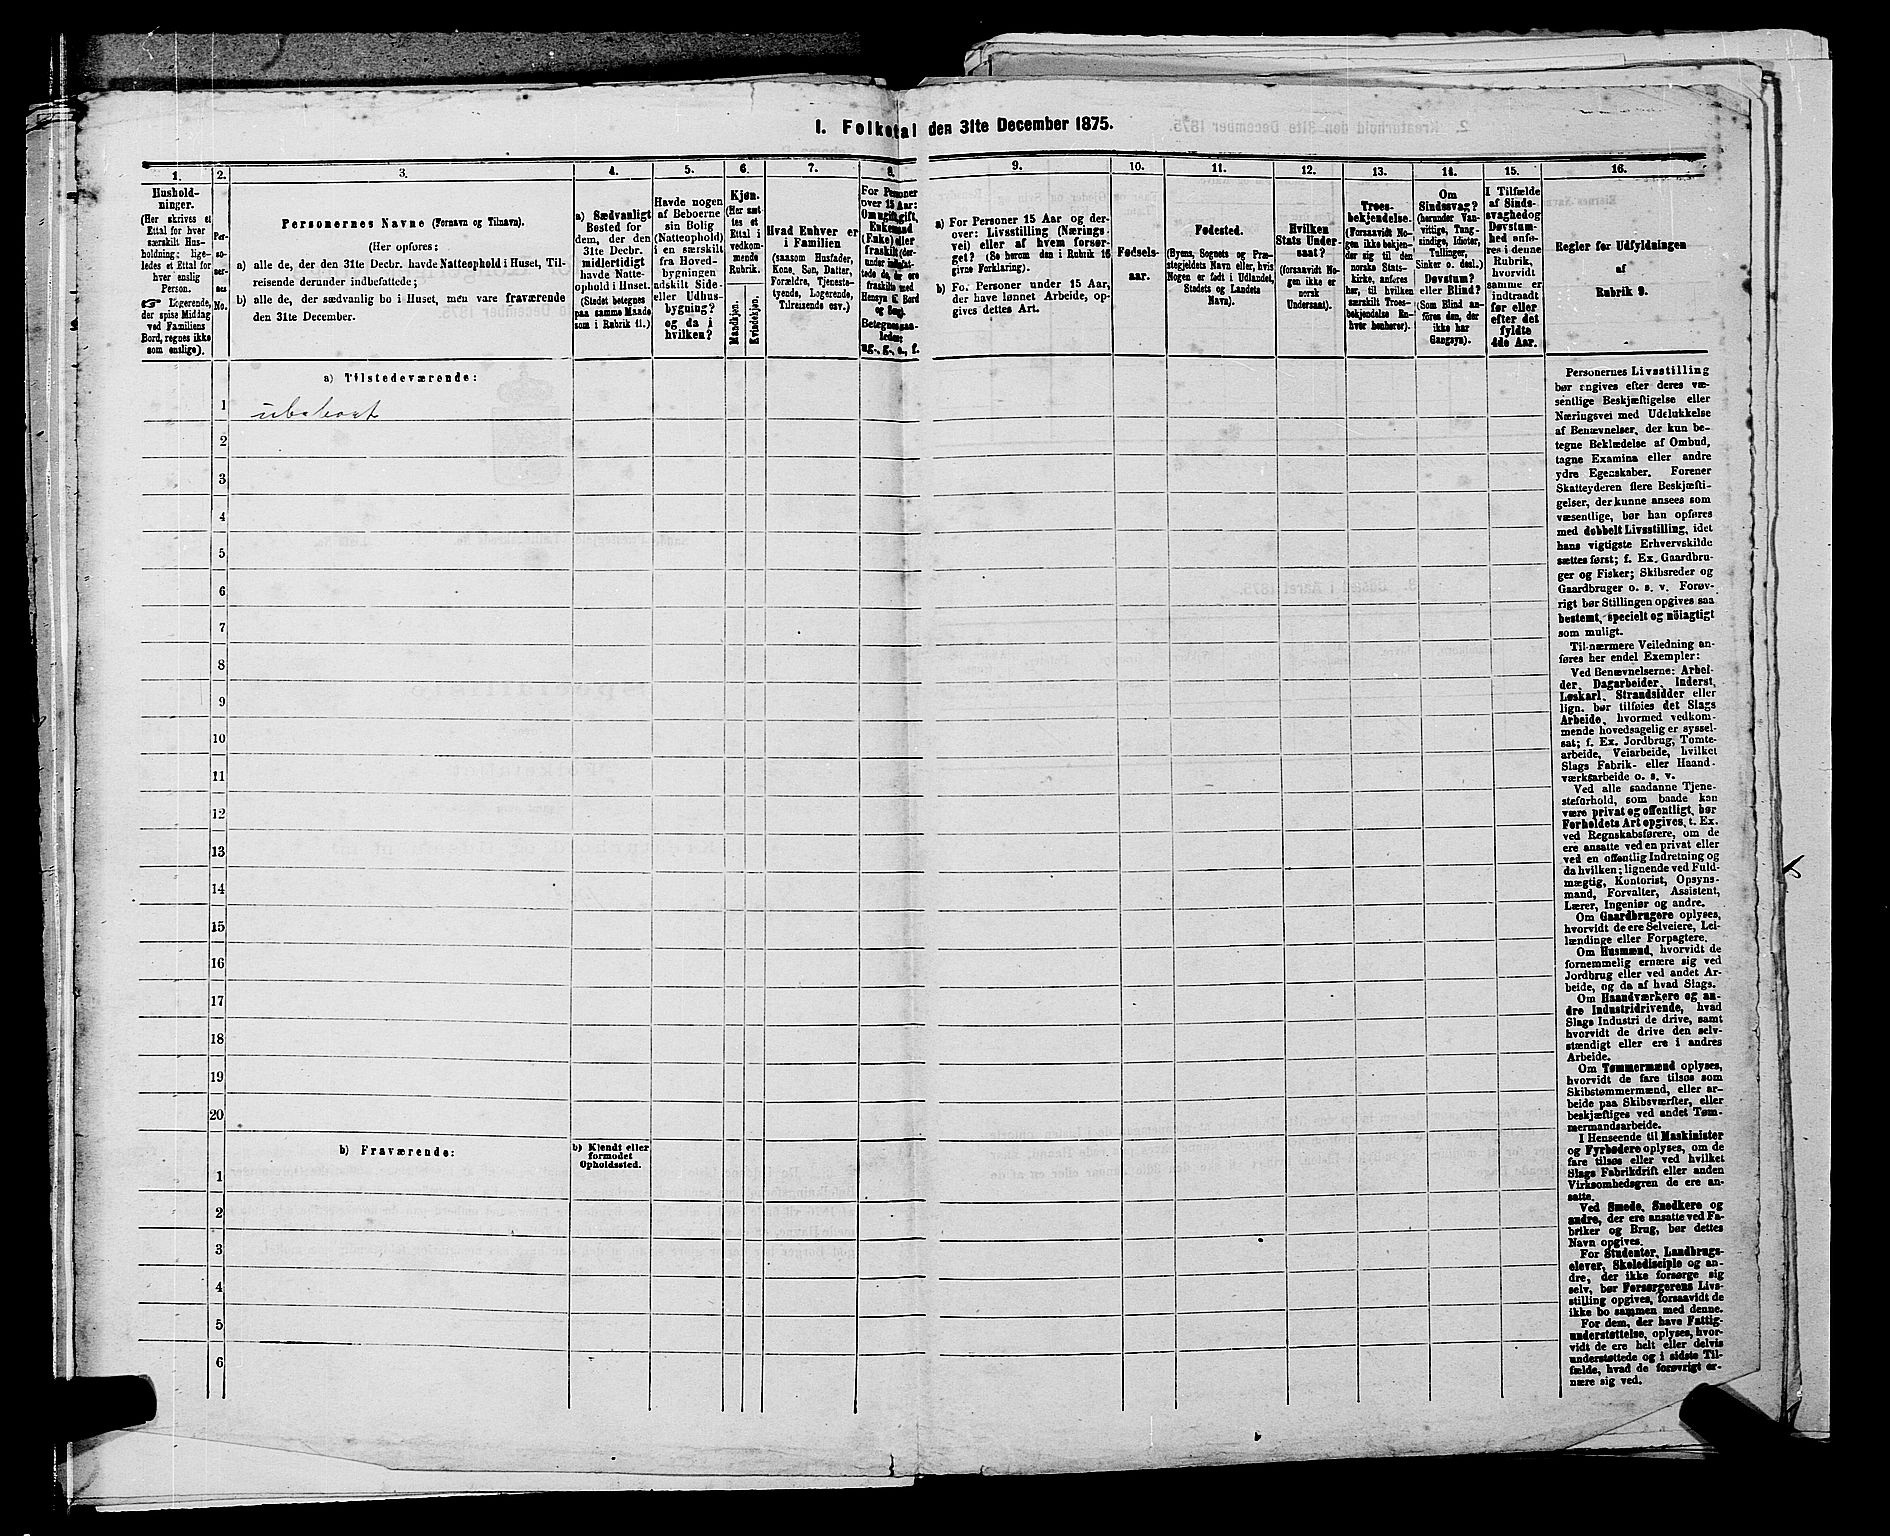 1. Folketal den 31te December 1875.
1.
2.
3.
4.
5.
6.
7.
8.
9.
10.
11.
12.
13.
14.
15.
16.
Hushold-
ninger.
(Her skrives et
Ettal for hver
særskilt Hus-
holdning; lige-
ledes et Ettal for
hver enslig
Person.
☞ Logerende,
der spise Middag
ved Familiens
Bord, regnes ikke
som enslige).
Per-
so-
ner-
nes
No.
Personernes Navne (Fornavn og Tilnavn).
(Her opføres:
a) alle de, der den 31te Decbr. havde Natteophold i Huset, Til-
reisende derunder indbefattede;
b) alle de, der sædvanlig bo i Huset, men vare fraværende
den 31te December.
a) Sædvanligt
Bosted for
dem, der den
31te Decbr.
midlertidigt
havde Natte-
ophold i Huset.
(Stedet betegnes
paa samme Maade
som i Rubrik 11.)
Havde nogen
af Beboerne
sin Bolig
(Natteophold)
i en særskilt
fra Hoved-
bygningen
udskilt Side-
eller Udhus-
bygning?
og da i
hvilken?
Kjøn.
(Her sæt-
tes et
Ettal i
vedkom-
mende
Rubrik.
Mandkjøn.
Kvindekjøn.
Hvad Enhver er
i Familien
(saasom Husfader,
Kone, Søn, Datter,
Forældre, Tjeneste-
tyende, Logerende,
Tilreisende osv.)
For Personer
over 15 Aar:
Om ugift, gift,
Enkemand
(Enke) eller
fraskilt (der-
under indbefat-
tede de, der ere
fraskilte med
Hensyn til Bord
og Seng).
Betegnes saa-
ledes:
ug., g., e., f.
a) For Personer 15 Aar og der-
over: Livsstilling (Nærings-
vei) eller af hvem forsør-
get? (Se herom den i Rubrik 16
givne Forklaring).
b) Fo. Personer under 15 Aar,
der have lønnet Arbeide, op-
gives dettes Art.
Fødsels-
aar.
Fødested.
(Byens, Sognets og Præ-
stegjeldets Navn eller, hvis
Nogen er født i Udlandet,
Stedets og Landets
Navn).
Hvilken
Stats Under-
saat?
(forsaavidt No-
gen ikke er
norsk
Undersaat).
Troes-
bekjendelse.
(Forsaavidt No-
gen ikke bekjen-
der sig til den
norske Stats-
kirke, anføres
her, til hvilken
særskilt Troes-
bekjendelse En-
hver henhører).
Om
Sindssvag?
(herunder Van-
vittige, Tung-
sindige, Idioter,
Tullinger,
Sinker o. desl.)
Døvstum?
eller Blind?
(Som Blind an-
føres den, der
ikke har
Gangsyn).
I Tilfælde
af Sinds-
svaghed og
Døvstum-
hed anfø-
res i denne
Rubrik,
hvorvidt
samme er
indtraadt
før eller
efter det
fyldte
4de Aar.
Regler for Udfyldningen
af
Rubrik 9.
a) Tilstedeværende:
1 ubeboet
2
3
4
5
6
7
8
9
10
11
12
13
14
15
16
17
18
19
20
b) Fraværende:
b) Kjendt eller
formodet
Opholdssted.
1
2
3
4
5
6
Personernes Livsstilling
bør angives efter deres væ-
sentlige Beskjæftigelse eller
Næringsvei med Udelukkelse
af Benævnelser, der kun be-
tegne Beklædelse af Ombud,
tagne Examina eller andre
ydre Egenskaber. Forener
Skatteyderen flere Beskjæfti-
gelser, der kunne ansees som
væsentlige, bør han opføres
med dobbelt Livsstilling, idet
hans vigtigste Erhvervskilde
sættes først; f. Ex. Gaardbru-
ger og Fisker; Skibsreder og
Gaardbruger o. s. v. Forøv-
rigt bør Stillingen opgives saa
bestemt, specielt og nöiagtigt
som muligt.
Til nærmere Veiledning an-
føres her endel Exempler:
Ved Benævnelserne: Arbei-
der, Dagarbeider, Inderst,
Løskarl, Strandsidder eller
lign. bør tilføies det Slags
Arbeide, hvormed vedkom-
mende hovedsagelig er syssel-
sat; f. Ex. Jordbrug, Tømte-
arbeide, Veiarbeide, hvilket
Slags Fabrik- eller Haand-
værksarbeide o. s. v.
Ved alle saadanne Tjene-
steforhold, som baade kan
være privat og offentligt, bør
Forholdets Art opgives, t. Ex.
ved Regnskabsførere, om de
ere ansatte ved en privat eller
ved en offentlig Indretning og
da hvilken; lignende ved Fuld-
mægtig, Kontorist, Opsyns-
mand, Forvalter, Assistent,
Lærer, Ingeniør og andre.
Om Gaardbrugere oplyses,
hvorvidt de ere Selveiere, Lei-
lændinge eller Forpagtere.
Om Husmænd, hvorvidt de
fornemmelig ernære sig ved
Jordbrug eller ved andet Ar-
beide, og da af hvad Slags.
Om Haandværkere og an-
dre Industridrivende, hvad
Slags Industri de drive, samt
hvorvidt de drive den selv-
stændigt eller ere i andres
Arbeide.
Om Tømmermænd oplyses,
hvorvidt de fare tilsøs som
Skibstømmermænd, eller ar-
beide paa Skibsværfter, eller
beskjæftiges ved andet Tøm-
mermandsarbeide.
I Henseende til Maskinister
og Fyrbødere oplyses, om de
fare tilsøs eller ved hvilket
Slags Fabrikdrift eller anden
Virksomhedsgren de ere an-
satte.
Ved Smede, Snedkere og
andre, der ere ansatte ved Fa-
briker og Brug, bør dettes
Navn opgives.
For Studenter, Landbrugs-
elever, Skoledisciple og an-
dre, der ikke forsørge sig
selv, bør Forsørgerens Livs-
stilling opgives, forsaavidt de
ikke bo sammen med denne.
For dem, der have Fattig-
understøttelse, oplyses, hvor-
vidt de ere helt eller delvis
understøttede og i sidste Til-
fælde, hvad de forøvrigt er-
nære sig ved.